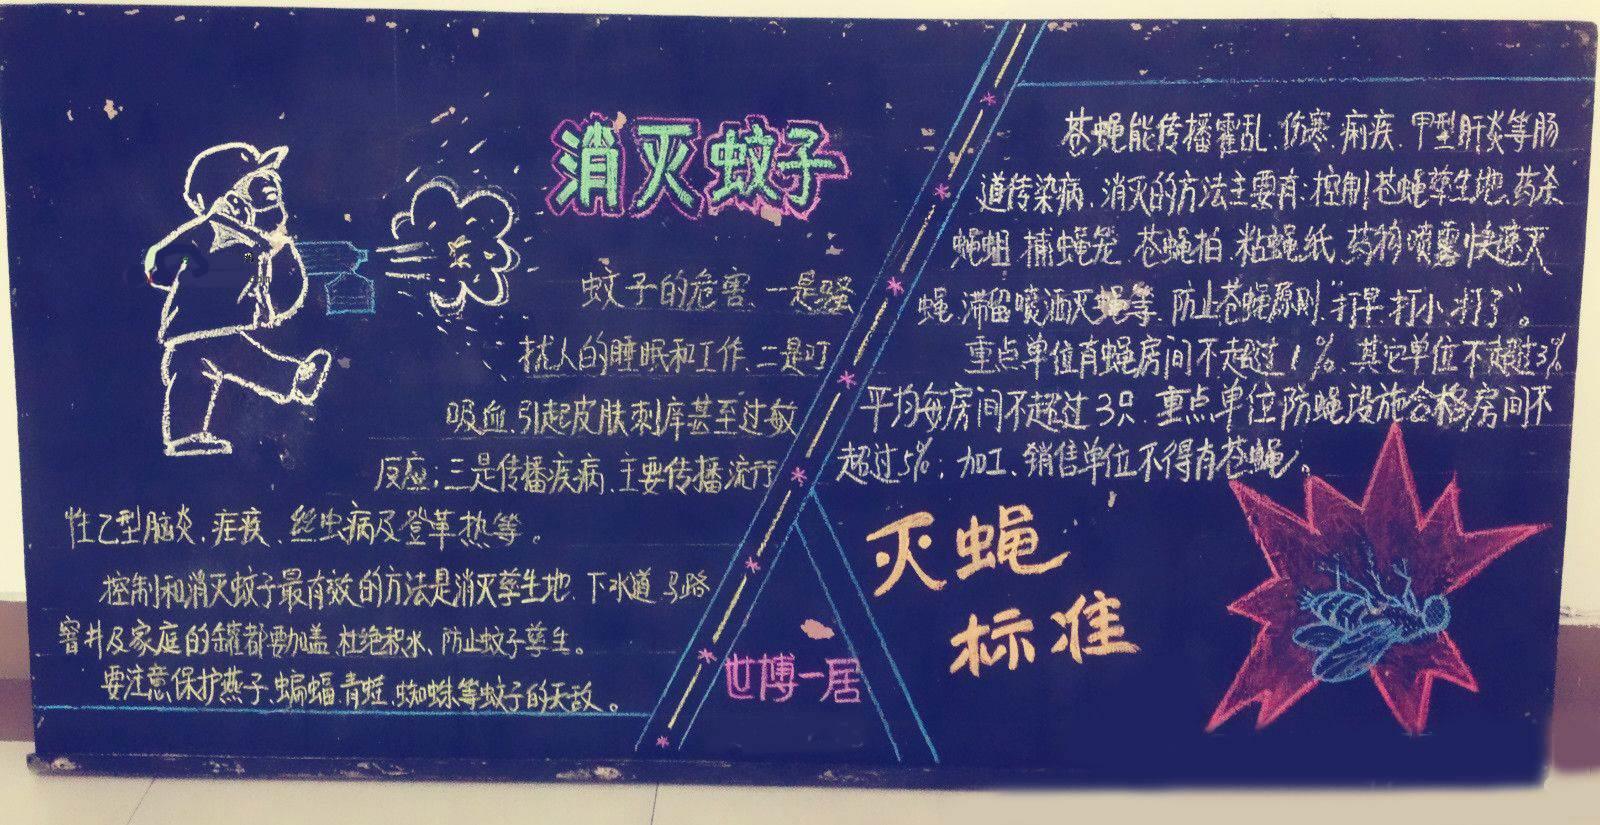 消灭蚊子
蚊子的危害、一是骚
扰人的睡眠和工作、二是叮
吸血、引起皮肤刺庠甚至过敏
反应；三是传播疾病、主要传播流行
性乙型脑炎、疟疾、丝虫病及登革热等。
控制和消灭蚊子最有效的方法是消灭孳生地、下水道、马路
窨井及家庭的罐都要加盖、杜绝积水、防止蚊子孳生。
要注意保护燕子、蝙蝠、青蛙、蜘蛛等蚊子的天敌。
世博一居
苍蝇能传播霍乱、伤寒、痢疾、甲型肝炎等肠
道传染病、消灭的方法主要有：控制苍蝇孳生地、药杀
蝇蛆、捕蝇笼、苍蝇拍、粘蝇纸、药物喷雾快速灭
蝇、滞留喷洒灭蝇等、防止苍蝇原则“打早、打小、打了”。
重点单位有蝇房间不超过1%、其它单位不超过3%
平均每房间不超过3只、重点单位防蝇设施合格房间不
超过5%；加工、销售单位不得有苍蝇。
灭蝇
标准